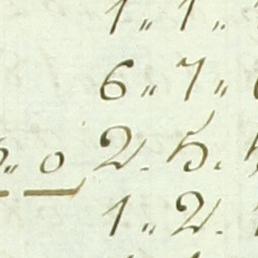 1 " 1 "
6 " 7 "
" 0 2 . 5 .
1 " 2 .